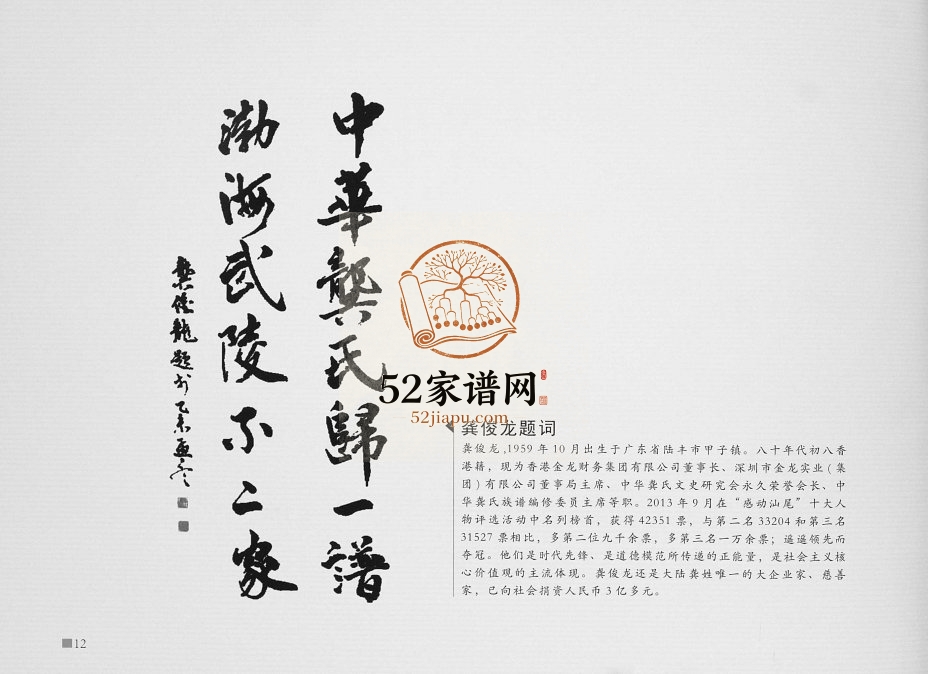 中華龔氏歸一譜
渤海武陵不二家
龔俊龍題
52家谱网
52jiapu.com
龚俊龙题词
龚俊龙,1959年10月出生于广东省陆丰市甲子镇。八十年代初入香
港籍，现为香港金龙财务集团有限公司董事长、深圳市金龙实业(集
团)有限公司董事局主席、中华龚氏文史研究会永久荣誉会长、中
华龚氏族谱编修委员主席等职。2013年9月在“感动汕尾”十大人
物评选活动中名列榜首，获得42351票，与第二名33204和第三名
31527票相比，多第二位九千余票，多第三名一万余票；遥遥领先而
夺冠。他们是时代先锋、是道德模范所传递的正能量，是社会主义核
心价值观的主流体现。龚俊龙还是大陆龚姓唯一的大企业家、慈善
家，已向社会捐资人民币3亿多元。
12